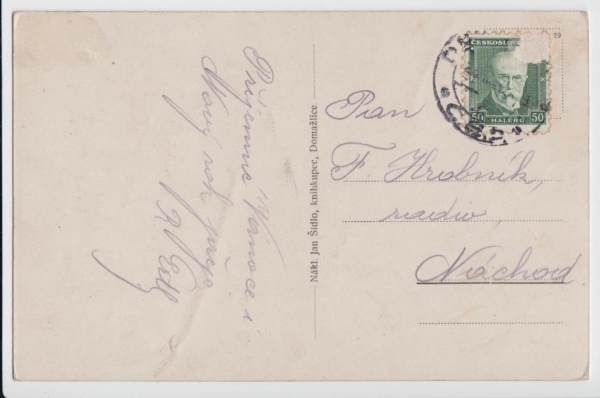 Příjemné Vánoce i
Nový rok přeje
Nákl. Jan Šídlo, knihkupec, Domažlice
29
ČESKOSLO
50 HALÉŘŮ 50
Pan
F. Hrobník,
radio
Náchod